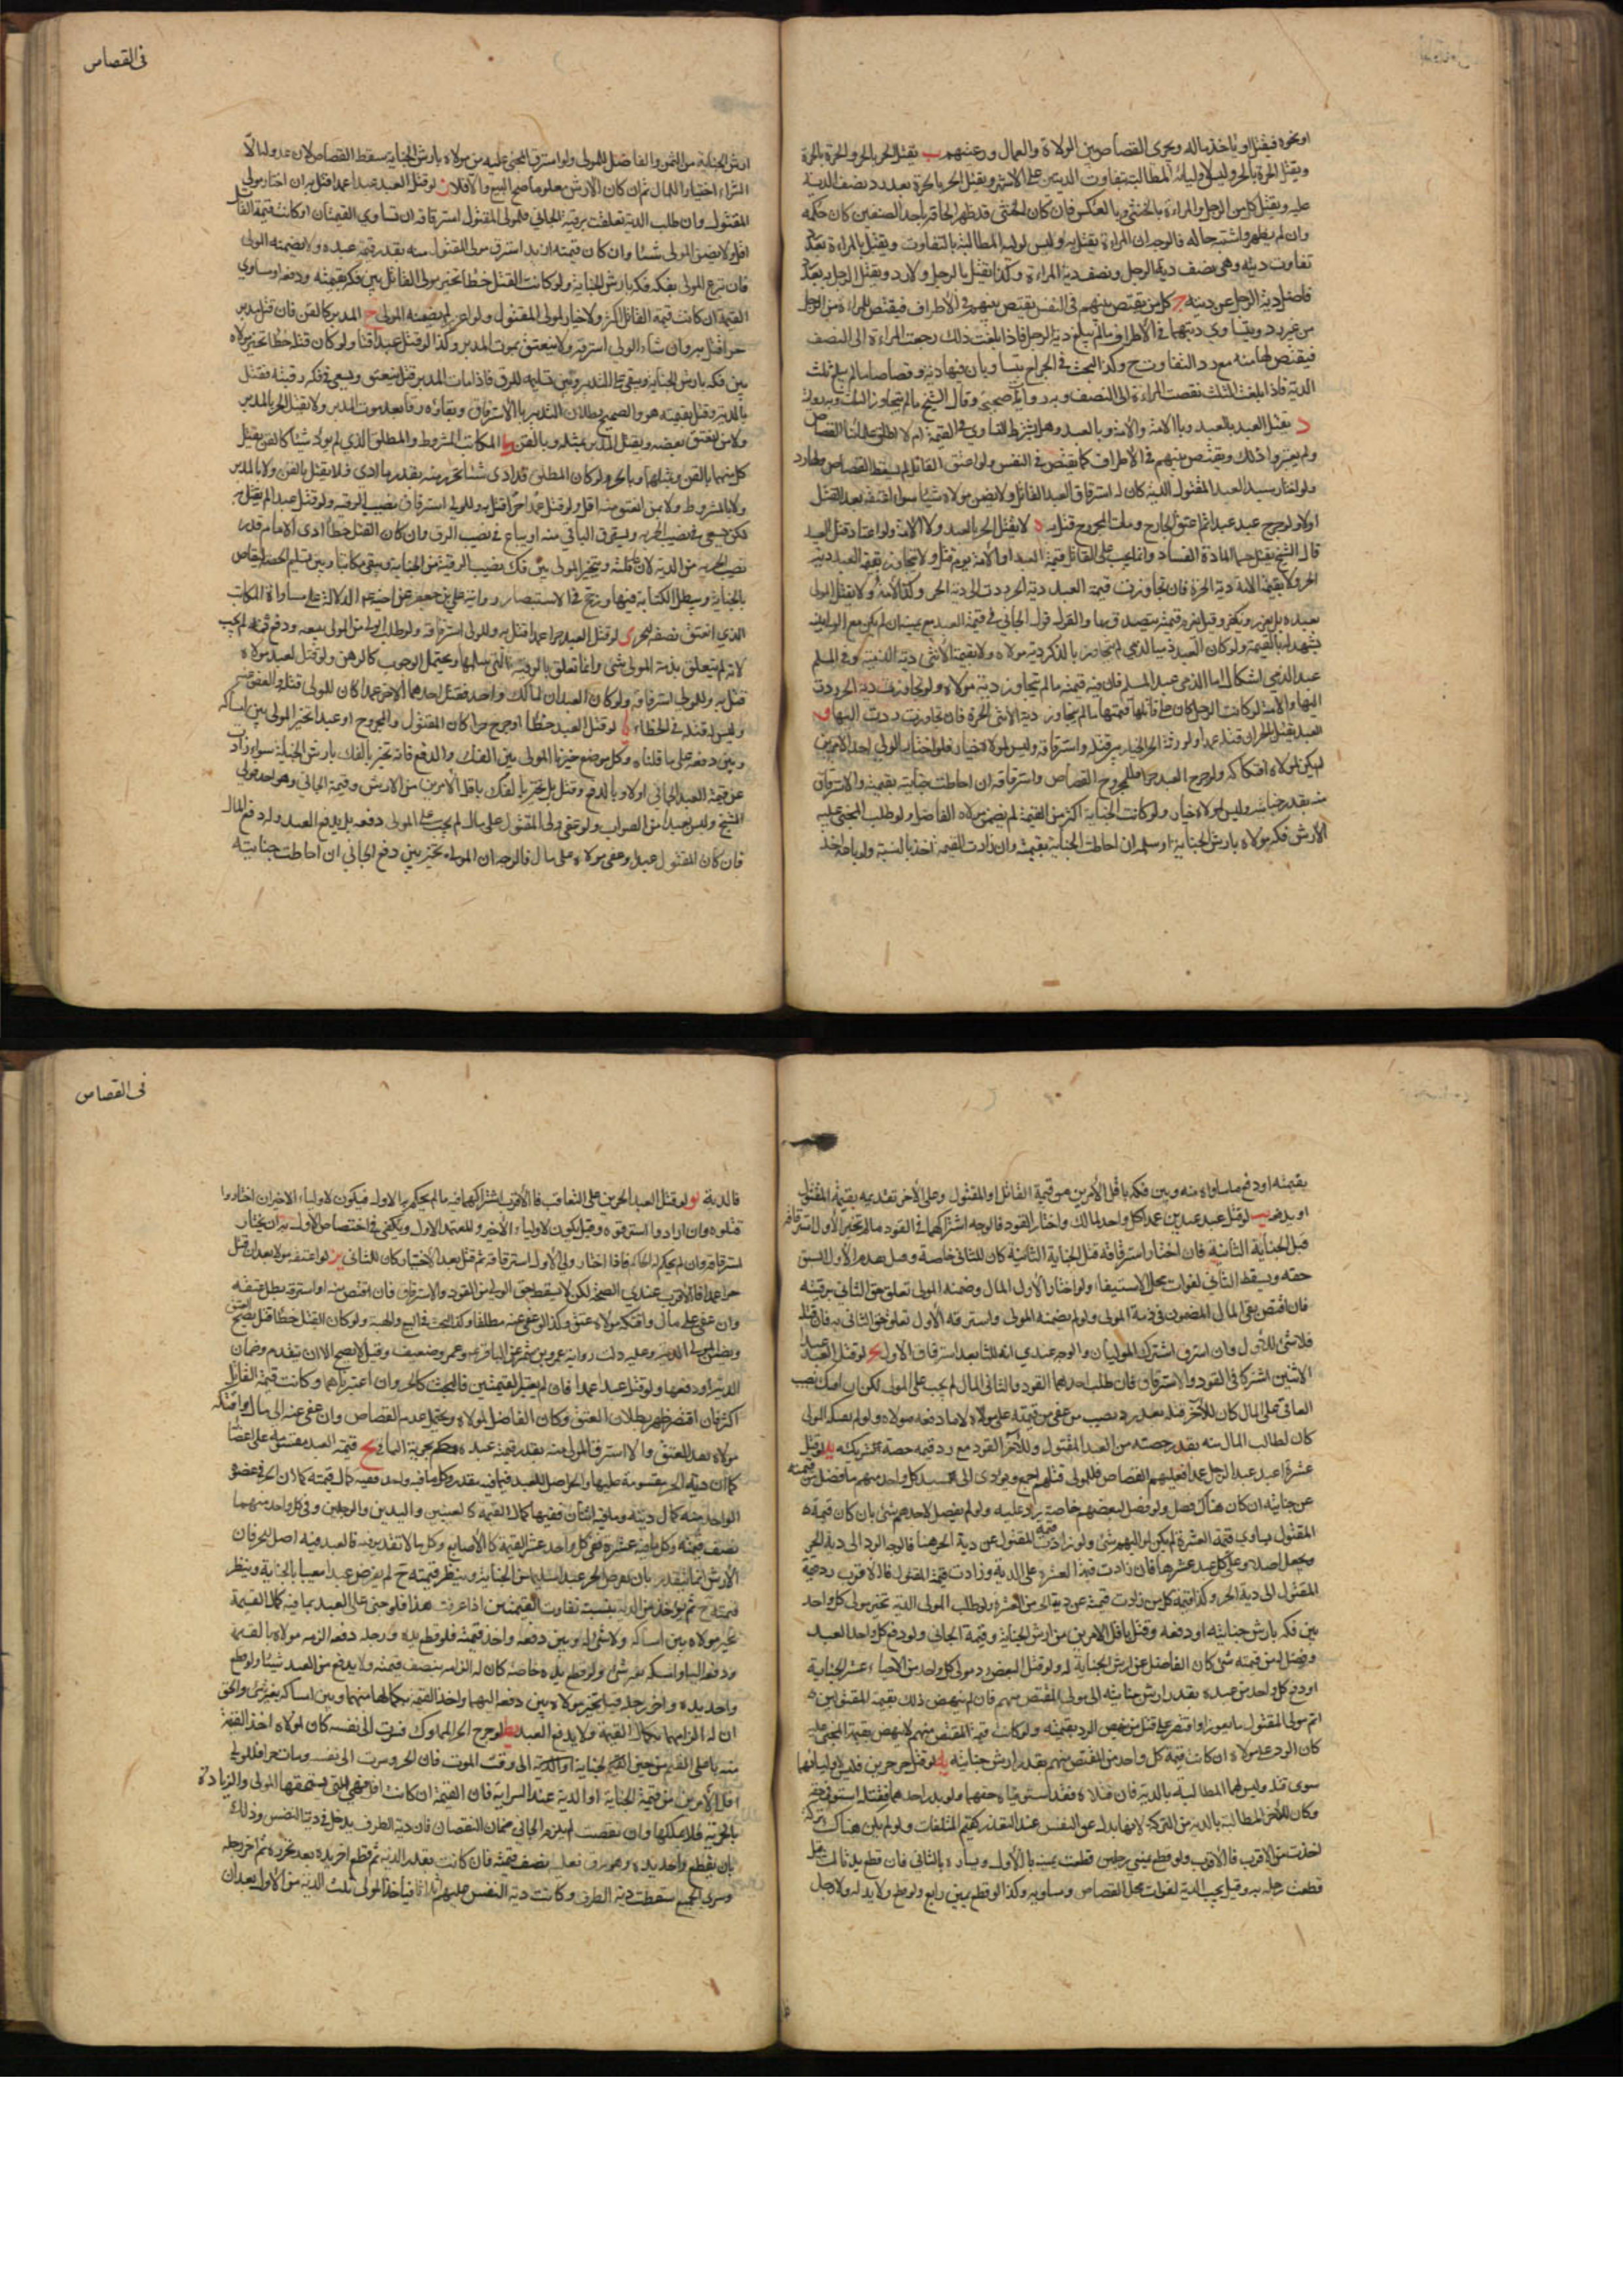 في القصاص
او نحوه فيقتل او ياخذ ماله ويجرى القصاص بين الولاة والعمال ورعيتهم ب يقتل الحر بالحر والحرة بالحرة
ويقتل الحرة بالحر وليس لاوليائه المطالبة بتفاوت الديتين على الاشهر ويقتل الحر بالحرة بعد رد نصف الدية
عليه ويقتل كل من الرجل والمراءة بالخنثى وبالعكس فان كان الخنثى قد ظهر الحاقه باحد الصنفين كان حكمه
وان لم يظهر واشتبه حاله فالوجه ان المراءة يقتل به وليس لوليه المطالبة بالتفاوت ويقتل بالمراءة بعد رد
تفاوت ديته وهى نصف دية الرجل ونصف دية المراءة وكذا يقتل بالرجل ولا رد ويقتل الرجل به بعد رد
فاضل دية الرجل عن ديته ج كل من يقتص بينهم في النفس يقتص بينهم في الاطراف فيقتص للمراءة من الرجل
من غير رد ويتساوى ديتهما في الاطراف ما لم يبلغ دية الرجل فاذا بلغت ذلك رجعت المراءة الى النصف
فيقتص لها منه مع رد التفاوت وكذا البحث في الجراح يتساويان فيها دية وقصاصا ما لم يبلغ ثلث
الدية فاذا بلغت الثلث نقصت المراءة الى النصف وبه رواية صحيحة وقال الشيخ ما لم يتجاوز الثلث
د يقتل العبد بالعبد وبالامة والامة بالامة وبالعبد وهل يشترط التساوى في القيمة ام لا اطلق علمائنا القصاص
ولم يعتبروا ذلك ويقتص بينهم في الاطراف كما يقتص في النفس ولو اعتق القاتل لم يسقط القصاص
ولو اختار سيد العبد المقتول الدية كان له استرقاق العبد القاتل ولا يضمن مولاه شيئا سواء اعتقه بعد القتل
اولا ولو جرح عبد عبدا ثم اعتق الجارح ومات المجروح قتل به ه لا يقتل الحر بالعبد ولا الامة ولو اعتاد قتل العبيد
قال الشيخ يقتل حسما لمادة الفساد وانما يجب على القاتل قيمة العبد او الامة يوم قتل ولا يتجاوز بقيمة العبد دية
الحر ولا بقيمة الامة دية الحرة فان تجاوزت قيمة العبد دية الحر ردت الى دية الحر وكذا الامة ولا يقتل المولى
بعبده بل يعزر ويكفر وقيل يغرم قيمته يتصدق بها والقول قول الجاني في قيمة العبد مع يمينه ان لم يكن مع المولى بينة
يشهد له بالقيمة ولو كان العبد ذميا لذمي لم يتجاوز بالذكر دية مولاه ولا بقيمة الانثى دية الذمية وفي المسلم
عبد الذمي اشكال اما الذمي عبد المسلم فان فيه قيمته ما لم يتجاوز دية مولاه ولو تجاوزت دية الحر ردت
اليها والامة لو كانت لرجل كان على قاتلها قيمتها ما لم يتجاوز دية الانثى الحرة فان تجاوزت ردت اليها و
العبد يقتل بالحر ان قتله عمدا ولورثة الحر الخيار بين قتله واسترقاقه وليس لمولاه خيار فلو اختار الولى احد الامرين
لم يكن لمولاه افتكاكه ولو جرح العبد حرا فللمجروح القصاص واسترقاقه ان احاطت جنايته بقيمته والا استرقاق
منه بقدر جنايته وليس لمولاه خيار ولو كانت الجناية اكثر من القيمة لم يضمن مولاه الفاضل ولو طلب المجنى عليه
الارش فكه مولاه بارش الجناية او سلمه ان احاطت الجناية بقيمته وان زادت القيمة اخذ بالنسبة
ارش الجناية من الثمن والفاضل للمولى ولو استرق المجنى عليه من مولاه بارش الجناية سقط القصاص لان عدوله الى
الشراء اختيار للمال ثم ان كان الارش معلوما صح البيع والا فلا ز لو قتل العبد عبدا عمدا قتل به ان اختار مولى
المقتول وان طلب الدية تعلقت برقبة الجاني فلمولى المقتول استرقاقه ان تساوى القيمتان او كانت قيمة القاتل
اقل ولا يضمن المولى شيئا وان كان قيمته ازيد استرق مولى المقتول منه بقدر قيمة عبده ولا يضمنه المولى
فان تبرع المولى بفكه فكه بارش الجناية ولو كانت القتل خطأ تخير مولى القاتل بين فكه بقيمته ودفعه
القيمة ان كانت قيمة القاتل اكثر ولا خيار لمولى المقتول ولو اعوز لم يضمنه المولى ح المدبر كالقن فان قتل مدبر
حرا قتل به وان شاء الولى استرقه ولا ينعتق بموت المدبر وكذا لو قتل عبدا قنا ولو كان قتله خطأ تخير مولاه
بين فكه بارش الجناية ويبقى على التدبير وبين تسليمه للرق فاذا مات المدبر قيل ينعتق ويسعى في فك رقبته فقيل
بالدية وقيل بقيمته هو والصحيح بطلان التدبير بالاسترقاق وبقاؤه رقا بعد موت المدبر ولا يقتل الحر بالمدبر
ولا من انعتق بعضه ويقتل المدبر بمثله وبالقن ط المكاتب المشروط والمطلق الذي لم يؤد شيئا كالقن يقتل
كل منهما بالقن وبمثلهما وبالحر ولو كان المطلق قد ادى شيئا تحرر منه بقدر ما ادى فلا يقتل بالقن ولا بالمدبر
ولا بالمشروط ولا بمن انعتق منه اقل ولو قتل حرا قتل به وللولى استرقاق نصيب الرقية ولو قتل عبدا لم يقتل به
لكن يسعى في نصيب الحرية ويسترق الباقي منه او يباع في نصيب الرق وان كان القتل خطأ ادى الامام قدر
نصيب الحرية من الدية لانه عاقلته ويتخير المولى بين فك نصيب الرقية من الجناية ويبقى مكاتبا وبين تسليم الحصة ليقاص
بالجناية ويبطل الكتابة فيها ورجح في الاستبصار رواية علي بن جعفر عن اخيه الدالة على مساواة المكاتب
الذي انعتق نصفه للحر ى لو قتل العبد حرا عمدا قتل به وللولى استرقاقه ولو طلب الولى من المولى بيعه ودفع ثمنه لم يجب
لانه لم يتعلق بذمة المولى شئ وانما تعلق بالرقبة التي سلمها ويحتمل الوجوب كالرهن ولو قتل العبد مولاه
قتل به وللولى استرقاقه ولو كان العبدان لمالك واحد فقتل احدهما الاخر عمدا كان للمولى قتله والعفو عنه
وليس له قتله في الخطاء يا لو قتل العبد خطأ او جرح حرا كان المقتول والمجروح او عبدا تخير المولى بين امساكه
وبين دفعه على ما قلناه وكل موضع خيرنا المولى بين الفك والدفع فانه يتخير بالفك بارش الجناية سواء زادت
عن قيمة العبد الجاني اولا وبالدفع وقيل بل يتخير بالفك باقل الامرين من الارش وقيمة الجاني وهو احد قولى
الشيخ وليس بعيدا من الصواب ولو عفى ولى المقتول على مال لم يجب على المولى دفعه بل يدفع العبد ولو دفع المال
فان كان المقتول عبدا وعفى مولاه على مال فالوجه ان المولى يتخير بين دفع الجاني ان احاطت جنايته
في القصاص
بقيمته او دفع ما ساواه منه وبين فكه باقل الامرين من قيمة القاتل او المقتول وعلى الاخر تقديمه بقيمة المقتول
يب لو قتل عبد عبدين عمدا كل واحد لمالك واختار القود فالوجه اشتراكهما في القود ما لم يتخير الاول استرقاقه
قبل الجناية الثانية فان اختار استرقاقه قبل الجناية الثانية كان للثاني خاصة وقيل يقدم الاول لسبق
حقه ويسقط الثاني لفوات محل الاستيفاء ولو اختار الاول المال وضمنه المولى تعلق حق الثاني برقبته
فان اقتص بقى المال المضمون في ذمة المولى ولو لم يضمنه المولى واسترقه الاول تعلق حق الثاني به فان قتله
فلا شئ للاول وان استرق اشترك الموليان والوجه عندي انه للثاني بعد استرقاق الاول يج لو قتل العبد عبدا
لاثنين اشتركا في القود والاسترقاق فان طلب احدهما القود والثاني المال لم يجب على المولى لكن ان امسك نصيب
العافى على المال كان للاخر قتله بعد رد نصيب من عفى من قيمته على مولاه لا ما دفعه مولاه ولو لم يفكه المولى
كان لطالب المال منه بقدر حصته من العبد المقتول وللاخر القود مع رد قيمة حصة شريكه يد لو قتل
عشرة اعبد عبدا لرجل عمدا فعليهم القصاص فللمولى قتلهم اجمع ويؤدى الى سيد كل واحد منهم ما فضل من قيمته
عن جنايته ان كان هناك فضل ولو فضل لبعضهم خاصة رد عليه ولو لم يفضل لاحدهم شئ بان كان قيمة
المقتول يساوى قيمة العشرة لم يكن لمواليهم شئ ولو زادت قيمة المقتول عن دية الحر هنا فالوجه الرد الى دية الحر
ويجعل اصلا وعلى كل عبد عشرها فان زادت قيمة العشرة على الدية وزادت قيمة المقتول فالاقرب رد قيمة
المقتول الى دية الحر وكذا قيمة كل من زادت قيمته عن دية الحر من العشرة ولو طلب المولى الدية تخير مولى كل واحد
بين فكه بارش جنايته او دفعه وقيل باقل الامرين من ارش الجناية وقيمة الجاني ولو دفع كل واحد العبد
وفضل من قيمته شئ كان الفاضل عن ارش الجناية له ولو قتل البعض رد مولى كل واحد من الاحياء عشر الجناية
او دفع كل واحد من عبده بقدر ارش جنايته الى مولى المقتص منهم فان لم ينهض ذلك بقيمة المقتولين
اتم مولى المقتول ما يعوز او اقتصر على قتل من ينهض الرد بقيمته ولو كانت قيمة المقتص منهم لا ينهض بقيمة المجنى عليه
كان الرد على مولاه ان كانت قيمة كل واحد من المقتص منهم بقدر ارش جنايته يه لو قتل حر حرين فليس لاوليائهما
سوى قتله وليس لهما المطالبة بالدية فان قتلاه فقد استوفيا حقهما ولو بدر احدهما فقتله استوفى حقه
وكان للاخر المطالبة بالدية من التركة لانها بدل عن النفس عند التعذر كقيم المتلفات ولو لم يكن هناك تركة
اخذت من الاقرب فالاقرب ولو قطع يمينى رجلين قطعت يمينه بالاول ويساره بالثاني فان قطع يد ثالث قيل
قطعت رجله به وقيل يجب الدية لفوات محل القصاص ومساويه وكذا لو قطع يمين رابع ولو قطع ولا يد له ولا رجل
فالدية يو لو قتل العبد الحرين على التعاقب فالاقرب اشتراكهما فيه ما لم يحكم به للاول فيكون لاولياء الاخر ان اختاروا
قتلوه وان ارادوا استرقوه وقيل يكون لاولياء الاخير والمعتمد الاول ويكفى في اختصاص الاول به ان يختار
استرقاقه وان لم يحكم له الحاكم فاذا اختار ولى الاول استرقاقه ثم قتل بعد الاختيار كان للثاني يز لو اعتقه مولاه بعد ان قتل
حرا عمدا فالاقرب عندي الصحة لكن لا يسقط حق الولى من القود والاسترقاق فان اقتص منه او استرقه بطل عتقه
وان عفى على مال وافتكه مولاه عتق وكذا لو عفى عنه مطلقا وكذا البحث في البيع والهبة ولو كان القتل خطأ قيل يصح العتق
ويضمن المولى الدية وعليه دلت رواية عمرو بن شمر عن الباقر ع وعمرو ضعيف وقيل لا يصح الا ان يتقدم وضمان
الدية او دفعها ولو قتل عبد عبدا عمدا فان لم يعتبر القيمتين فالبحث كالحر وان اعتبرناهما وكانت قيمة القاتل
اكثر فان اقتص ظهر بطلان العتق وكان الفاضل لمولاه ويحتمل عدم القصاص وان عفى عنه الى مال وافتكه
مولاه نفذ العتق والا استرق المولى منه بقدر قيمة عبده وحكم بحرية الباقي يح قيمة العبد مقسومة على اعضائه
كما ان دية الحر مقسومة عليها والحر اصل للعبد فيما فيه مقدر وكل ما فيه واحد ففيه كمال قيمته كما ان الحر في عضوه
الواحد منه كمال ديته وما فيه اثنان ففيهما كمال القيمة كالعينين واليدين والرجلين وفي كل واحد منهما
نصف قيمته وكل ما فيه عشرة ففي كل واحد عشر القيمة كالاصابع وكل ما لا تقدير فيه فالعبد فيه اصل للحر فان
الارش انما يتقدر بان يفرض الحر عبدا سليما من الجناية وينظر قيمته ح ثم يفرض عبدا معيبا بالجناية وينظر
قيمته ح ثم يؤخذ من الدية بنسبة تفاوت القيمتين اذا عرفت هذا فلو جنى على العبد بما فيه كمال القيمة
تخير مولاه بين امساكه ولا شئ له وبين دفعه واخذ قيمته فلو قطع يده ورجله دفعه الزمه مولاه بالقيمة
ودفعه اليه او امسكه بغير شئ ولو قطع يده خاصة كان له الزامه بنصف قيمته ولا يدفع من العبد شيئا ولو قطع
واحد يده واخر رجله قيل يتخير مولاه بين دفعه اليهما واخذ القيمة بكمالها منهما وبين امساكه بغير شئ والحق
ان له الزامهما بكمال القيمة ولا يدفع العبد يط لو جرح الحر المملوك فسرت الى نفسه كان لمولاه اخذ القيمة
اقل الامرين من قيمة الجناية او الدية عند السراية فان القيمة ان كانت اقل فهى التي يستحقها المولى والزيادة
بالحرية فلا يملكها وان نقصت لم يلزم الجاني ضمان النقصان فان دية الطرف يدخل في دية النفس وذلك
بان يقطع واحد يده وهو رق فعليه نصف قيمته فان كانت بقدر الدية ثم قطع اخر يده بعد تحرره ثم اخر رجله
وسرى الجميع سقطت دية الطرف وكانت دية النفس عليهم اثلاثا فياخذ المولى ثلث الدية من الاول بعد ان